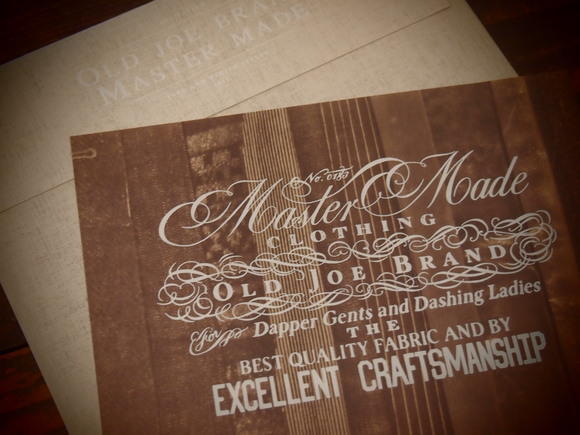 OLD JOE BRAND
MASTER MADE
No. 0183
Master Made
CLOTHING
OLD JOE BRAND
For Dapper Gents and Dashing Ladies
THE
BEST QUALITY FABRIC AND BY
EXCELLENT CRAFTSMANSHIP